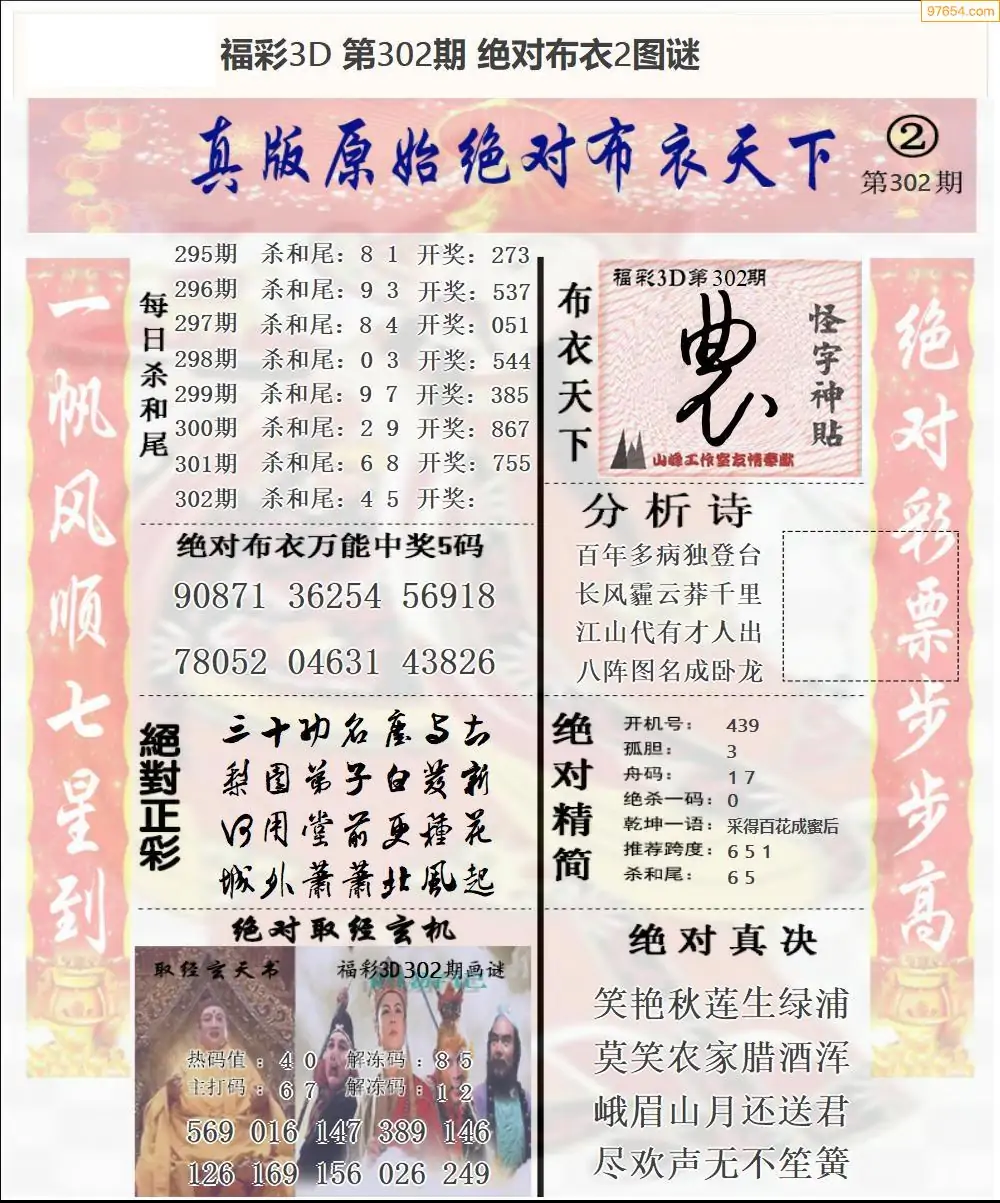 97654.com
福彩3D 第302期 绝对布衣2图谜
真版原始绝对布衣天下
②
第302期
一帆风顺七星到
每日杀和尾
295期 杀和尾：8 1 开奖：273
296期 杀和尾：9 3 开奖：537
297期 杀和尾：8 4 开奖：051
298期 杀和尾：0 3 开奖：544
299期 杀和尾：9 7 开奖：385
300期 杀和尾：2 9 开奖：867
301期 杀和尾：6 8 开奖：755
302期 杀和尾：4 5 开奖：
绝对布衣万能中奖5码
90871 36254 56918
78052 04631 43826
絕對正彩
三十功名塵与土
梨園弟子白发新
河用堂前更種花
城外蕭蕭北風起
绝对取经玄机
取经玄天书
福彩3D302期画谜
热码值：4 0 解冻码：8 5
主打码：6 7 解冻码：1 2
569 016 147 389 146
126 169 156 026 249
布衣天下
福彩3D第302期
农
怪字神貼
山峰工作室友情奉献
分析诗
百年多病独登台
长风霾云莽千里
江山代有才人出
八阵图名成卧龙
绝对精简
开机号： 439
孤胆： 3
舟码： 1 7
绝杀一码：0
乾坤一语：采得百花成蜜后
推荐跨度：6 5 1
杀和尾： 6 5
绝对真决
笑艳秋莲生绿浦
莫笑农家腊酒浑
峨眉山月还送君
尽欢声无不笙簧
绝对彩票步步高